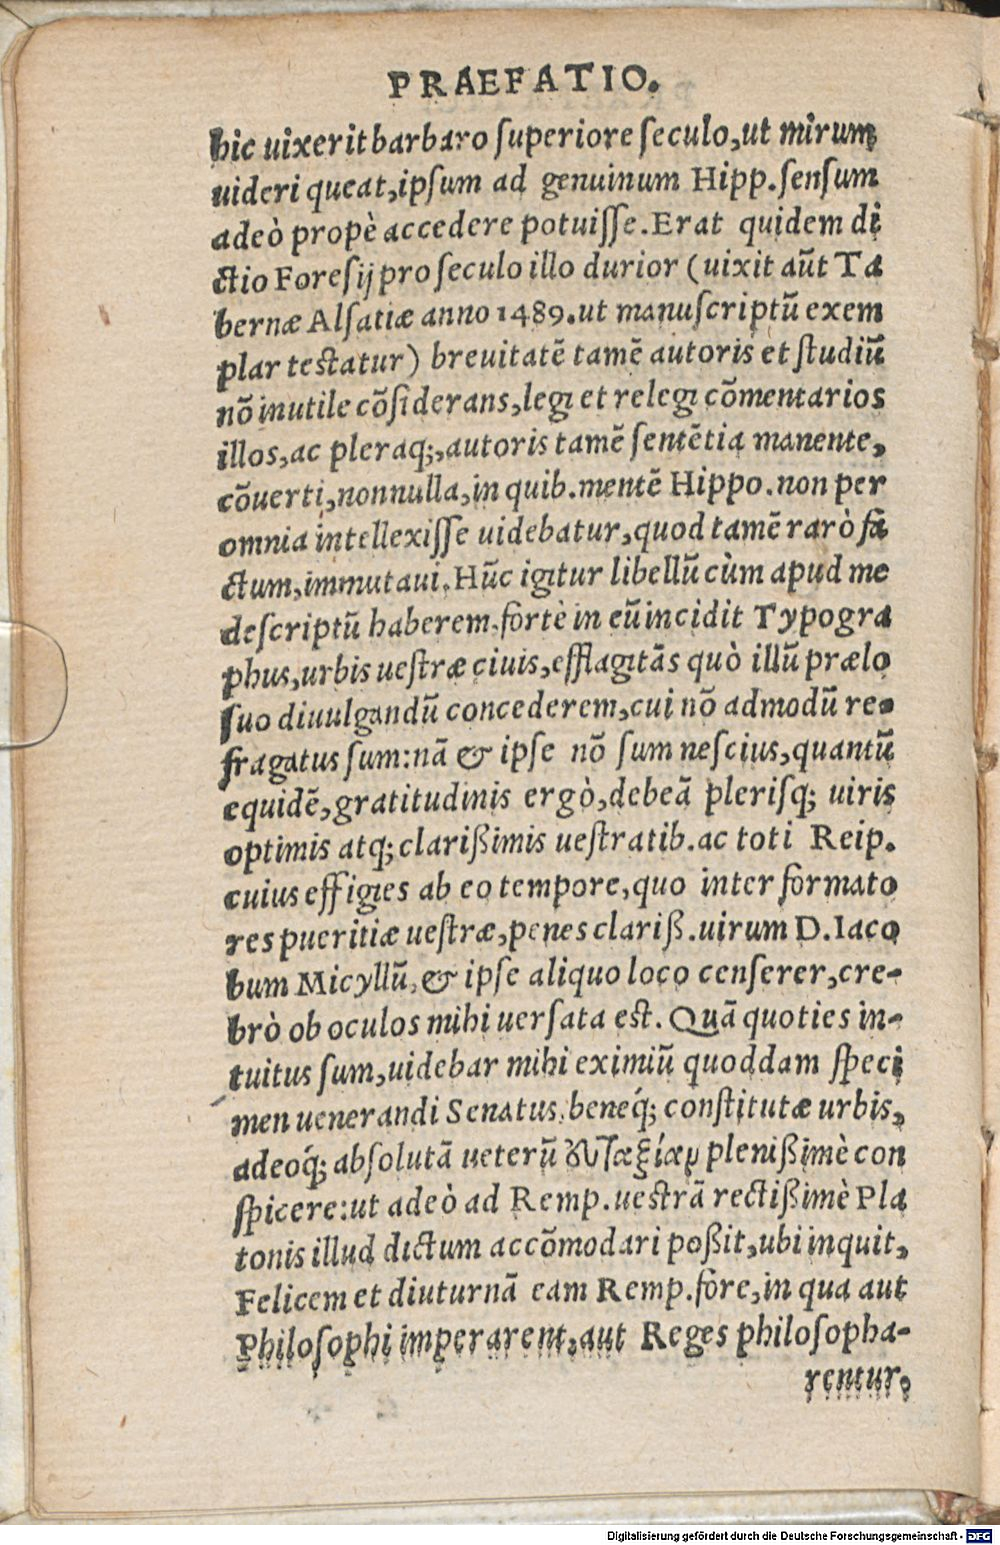 PRAEFATIO.
hic uixerit barbaro ſuperiore ſeculo, ut mirum
uideri queat, ipſum ad genuinum Hipp. ſenſum
adeò propè accedere potuiſſe. Erat quidem di
ctio Foreſij pro ſeculo illo durior (uixit aũt Ta
bernæ Alſatiæ anno 1489. ut manuſcriptũ exem
plar teſtatur) breuitatẽ tamẽ autoris et ſtudiũ
nõ inutile cõſiderans, legi et relegi cõmentarios
illos, ac pleraq;, autoris tamẽ ſentẽtia manente,
cõuerti, nonnulla, in quib. mentẽ Hippo. non per
omnia intellexiſſe uidebatur, quod tamẽ rarò fa
ctum, immutaui. Hũc igitur libellũ cùm apud me
deſcriptũ haberem, fortè in eũ incidit Typogra
phus, urbis ueſtræ ciuis, efflagitãs quò illũ prælo
ſuo diuulgandũ concederem, cui nõ admodũ re-
fragatus ſum: nã & ipſe nõ ſum neſcius, quantũ
equidẽ, gratitudinis ergò, debeã pleriſq; uiris
optimis atq; clarißimis ueſtratib. ac toti Reip.
cuius effigies ab eo tempore, quo inter formato
res pueritiæ ueſtræ, penes clariß. uirum D. Iaco
bum Micyllũ, & ipſe aliquo loco cenſerer, cre-
brò ob oculos mihi uerſata eſt. Quã quoties in-
tuitus ſum, uidebar mihi eximiũ quoddam ſpeci
men uenerandi Senatus, beneq́; conſtitutæ urbis,
adeoq́; abſolutã ueterũ εὐταξίαν plenißimè con
ſpicere: ut adeò ad Remp. ueſtrã rectißimè Pla
tonis illud dictum accõmodari poßit, ubi inquit,
Felicem et diuturnã eam Remp. fore, in qua aut
Philoſophi imperarent, aut Reges philoſopha-
rentur.
Digitalisierung gefördert durch die Deutsche Forschungsgemeinschaft - DFG